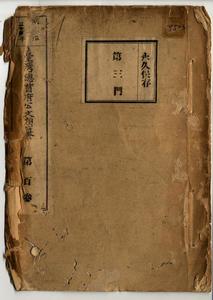 永久保存
第三門
臺灣總督府公文類纂
第百卷